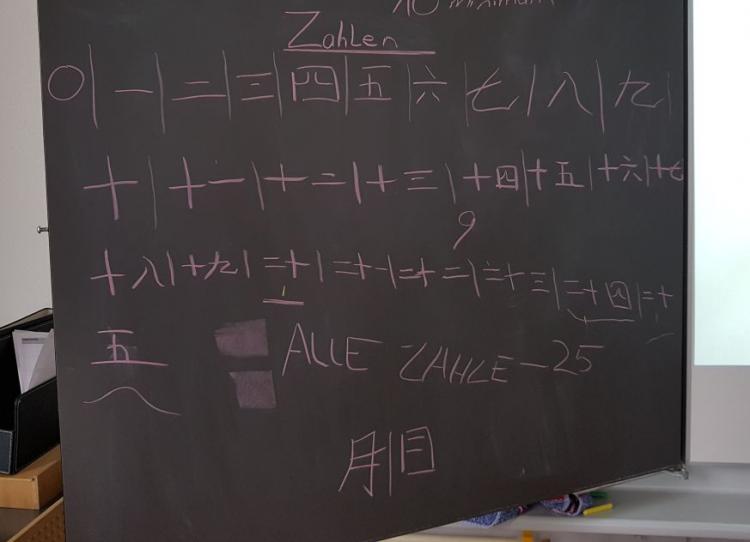 Zahlen
〇|一|二|三|四|五|六|七|八|九|
十|十一|十二|十三|十四|十五|十六|十七
9
十八|十九|二十|二十一|二十二|二十三|二十四|二十
五
ALLE ZAHLE-25
月|日